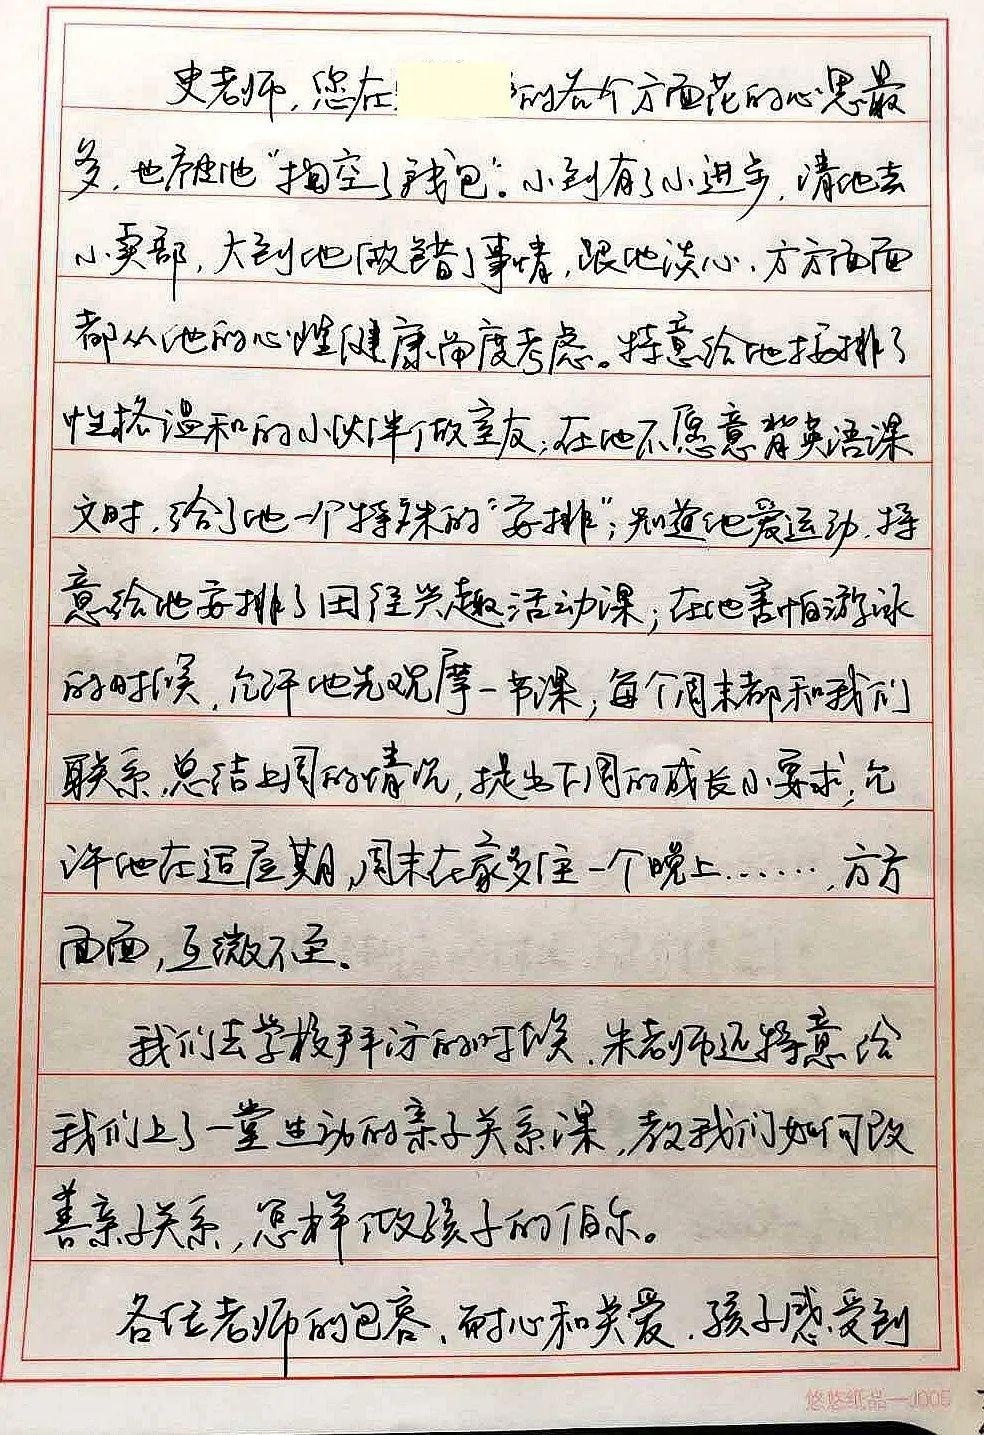 史老师,您在 的各个方面花的心思最
多,也被他"掏空了钱包"。小到有了小进步,请他去
小卖部,大到他做错了事情,跟他谈心,方方面面
都从他的心性健康角度考虑。特意给他安排了
性格温和的小伙伴做室友;在他不愿意背英语课
文时,给了他一个特殊的"安排";知道他爱运动,特
意给他安排了田径兴趣活动课;在他害怕游泳
的时候,允许他先观摩一节课;每个周末都和我们
联系,总结上周的情况,提出下周的成长小要求;允
许他在适应期,周末在家多住一个晚上……,方方
面面,无微不至。
我们去学校拜访的时候,朱老师还特意给
我们上了一堂生动的亲子关系课,教我们如何改
善亲子关系,怎样做孩子的伯乐。
各位老师的包容、耐心和关爱,孩子感受到
悠悠纸品—J005